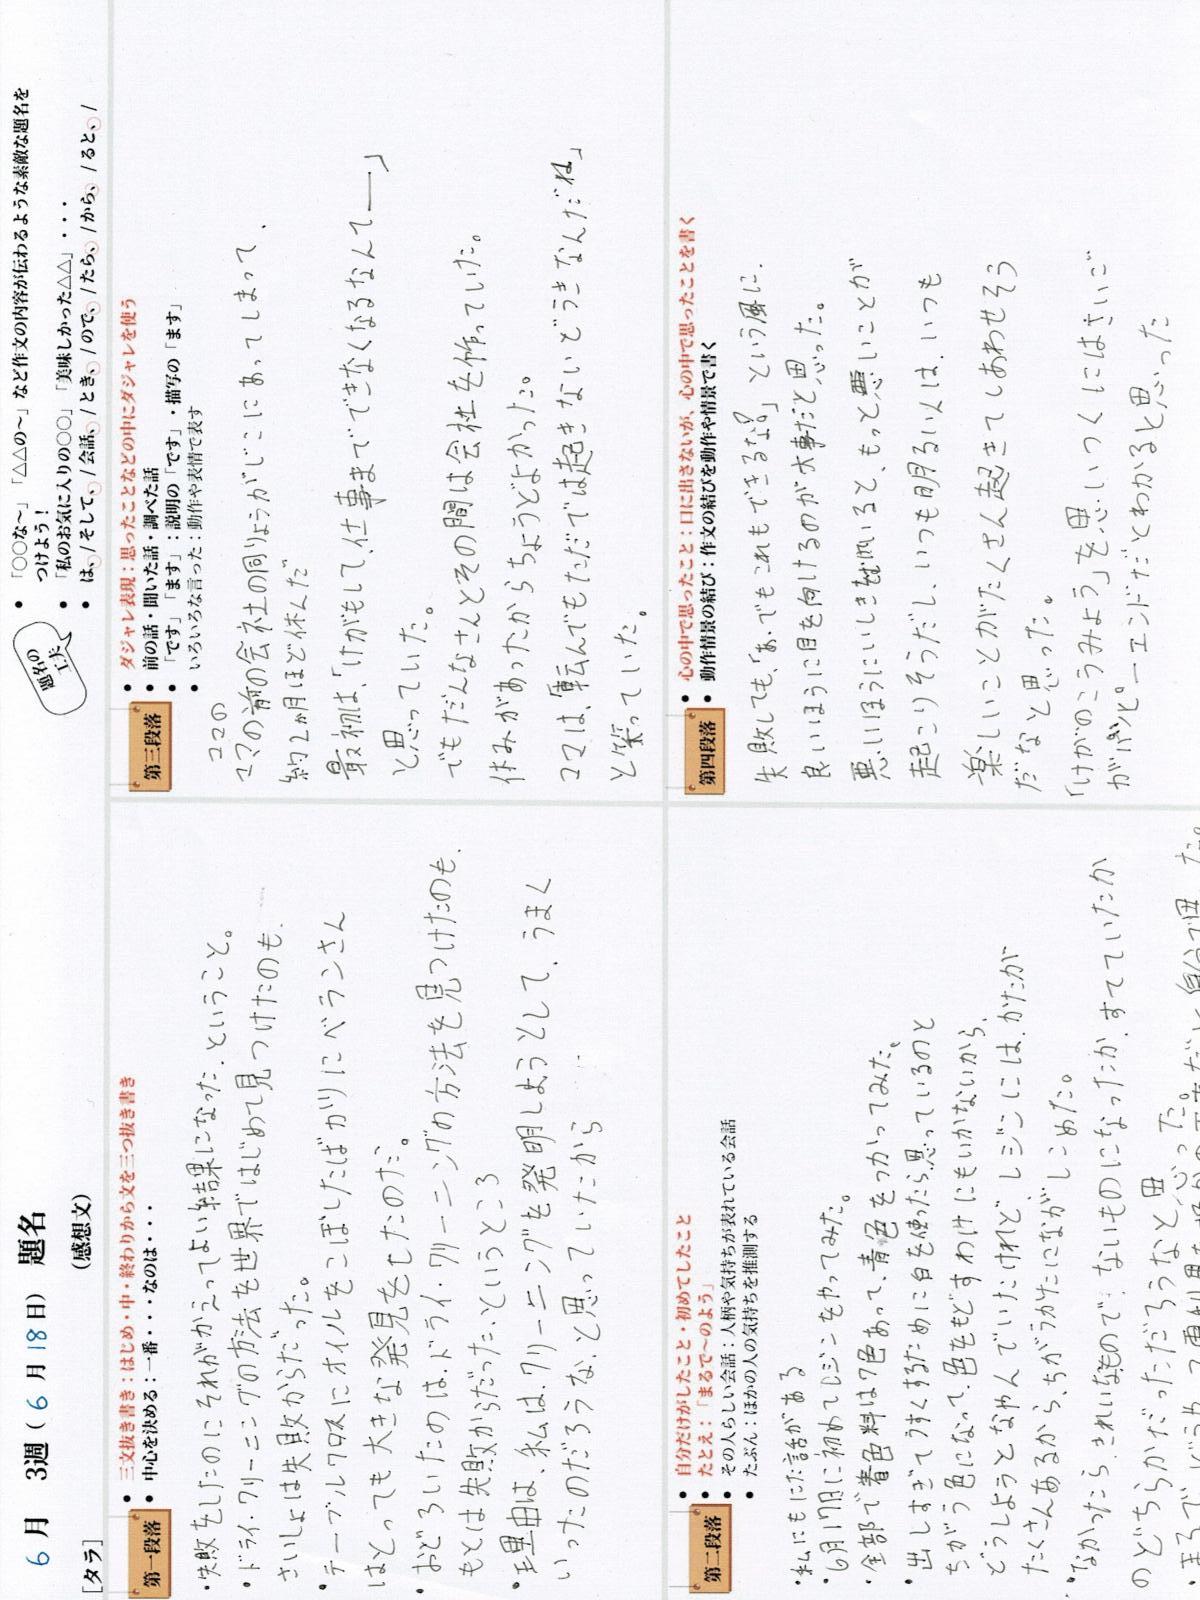 6月 3週(6月18日) 題名
(感想文)
[タラ]
題名の
工夫
• 「○○な～」「△△の～」など作文の内容が伝わるような素敵な題名を
つけよう!
• 「私のお気に入りの○○」「美味しかった△△」・・・
• は、/そして、/会話、/とき、/ので、/たら、/から、/ると、/
第一段落
• 三文抜き書き:はじめ・中・終わりから文を三つ抜き書き
• 中心を決める:一番・・・なのは・・・
・失敗をしたのにそれがかえってよい結果になった、ということ。
・ドライ・クリーニングの方法を世界ではじめて見つけたのも、
さいしょは失敗からだった。
・テーブルクロスにオイルをこぼしたばかりにベランさん
はとっても大きな発見をしたのだ。
・おどろいたのは、ドライ・クリーニングの方法を見つけたのも、
もとは失敗からだった、というところ
・理由は、私は、クリーニングを発明しようとして、うまく
いったのだろうな、と思っていたから
第二段落
• 自分だけがしたこと・初めてしたこと
• たとえ:「まるで～のよう」
• その人らしい会話:人柄や気持ちが表れている会話
• たぶん:ほかの人の気持ちを推測する
・私にもにた話がある
・6月17日に初めてレジンをやってみた。
・全部で着色料は7色あって、青色をつかってみた。
・出しすぎてうすくするために白を使ったら思っているのと
ちがう色になって、色をもどすわけにもいかないから、
どうしようとなやんでいたけれど、レジンには、かたが
たくさんあるから、ちがうかたにながしこめた。
・なかったら、きれいなもので、ないものになったか、すてていたか
のどちらかだっただろうなと思った。
第三段落
• ダジャレ表現:思ったことなどの中にダジャレを使う
• 前の話・聞いた話・調べた話
• 「です」「ます」:説明の「です」・描写の「ます」
• いろいろな言った:動作や表情で表す
ココの
ママの前の会社の同りょうがじこにあってしまって、
約2か月ほど休んだ
最初は、「けがもして、仕事までできなくなるなんて――」
と思っていた。
でもだんなさんとその間は会社を作っていた。
休みがあったからちょうどよかった。
ママは、「転んでもただでは起きないどうさなんだね」
と笑っていた。
第四段落
• 心の中で思ったこと:口に出さないが、心の中で思ったことを書く
• 動作情景の結び:作文の結びを動作や情景で書く
失敗しても、「あ、でもこれもできるな?」という風に、
良いほうに目を向けるのが大事だと思った。
悪いほうにいしきをむけると、もっと悪いことが
起こりそうだし、いつも明るい人は、いつも
楽しいことがたくさん起きてしあわせそう
だなと思った。
「けがのこうみょう」を思いつくにはさいご
がハッピーエンドだとわかると思った